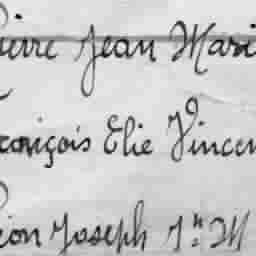 ierre Jean Mari
rançois Elie Vincen
éon Joseph Jn M